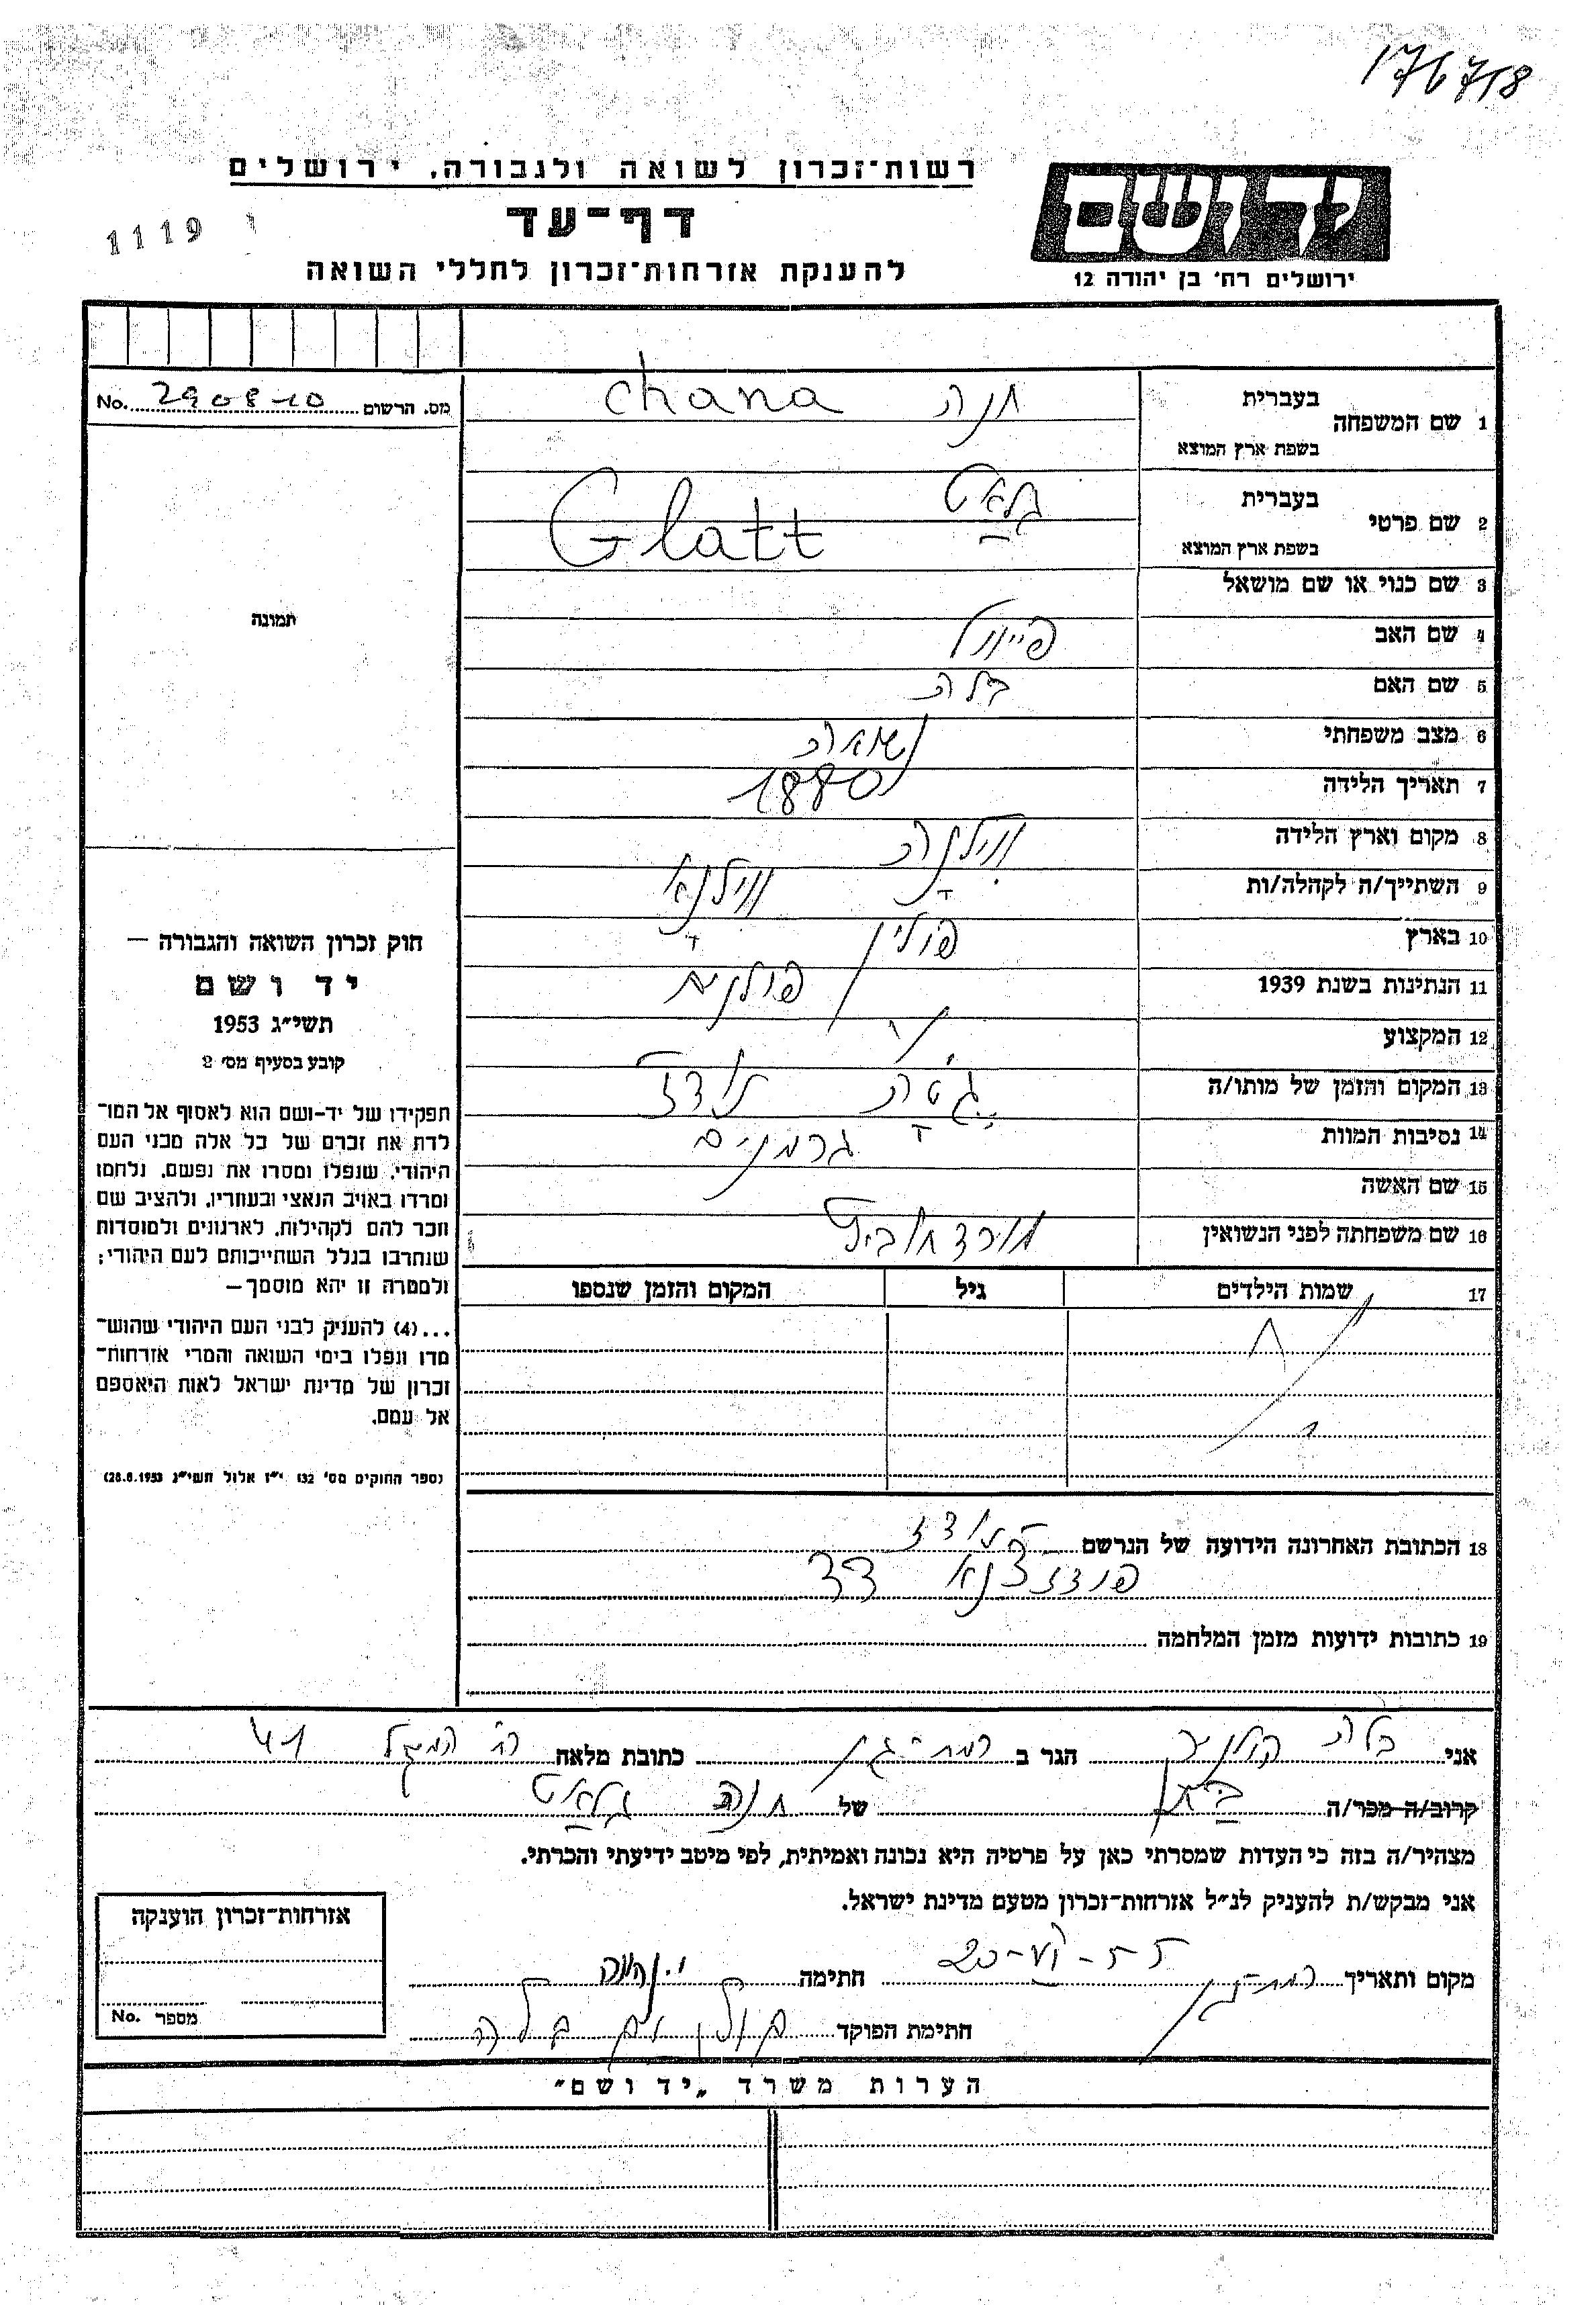 176718
רשות־זכרון לשואה ולגבורה, ירושלים
דף־עד
1119
להענקת אזרחות־זכרון לחללי השואה
יד ושם
ירושלים רח׳ בן יהודה 12
מס. הרשום No. 290810
1 שם המשפחה בעברית חנה chana
בשפת ארץ המוצא
2 שם פרטי בעברית גלאט
בשפת ארץ המוצא Glatt
3 שם כנוי או שם מושאל
4 שם האב פייוול
5 שם האם בלה
6 מצב משפחתי נשואה
7 תאריך הלידה 1880
8 מקום וארץ הלידה ווילנה
9 השתייך/ה לקהלה/ות ווילנא
10 בארץ פולין
11 הנתינות בשנת 1939 פולנית
12 המקצוע
13 המקום והזמן של מותו/ה גטה לודז
14 נסיבות המוות גרמנים
15 שם האשה
16 שם משפחתה לפני הנשואין
17 שמות הילדים גיל המקום והזמן שנספו
תמונה
חוק זכרון השואה והגבורה —
יד ושם
תשי״ג 1953
קובע בסעיף מס׳ 2
תפקידו של יד-ושם הוא לאסוף אל המו־
לדת את זכרם של כל אלה מבני העם
היהודי, שנפלו ומסרו את נפשם, נלחמו
ומרדו באויב הנאצי ובעוזריו, ולהציב שם
וזכר להם לקהילות, לארגונים ולמוסדות
שנחרבו בגלל השתייכותם לעם היהודי;
ולמטרה זו יהא מוסמך—
...(4) להעניק לבני העם היהודי שהוש־
מדו ונפלו בימי השואה והמרי אזרחות־
זכרון של מדינת ישראל לאות היאספם
אל עמם.
(ספר החוקים מס׳ 132 י״ז אלול תשי״ג 28.8.1953)
18 הכתובת האחרונה הידועה של הנרשם לודז
33
19 כתובות ידועות מזמן המלחמה
אני בלה הגר ב רמת-גן כתובת מלאה 41
קרוב/ה מכר/ה בת של חנה גלאט
מצהיר/ה בזה כי העדות שמסרתי כאן על פרטיה היא נכונה ואמיתית, לפי מיטב ידיעתי והכרתי.
אני מבקש/ת להעניק לנ״ל אזרחות־זכרון מטעם מדינת ישראל.
מקום ותאריך רמת-גן 20-VI-55 חתימה
חתימת הפוקד בלה
אזרחות־זכרון הוענקה
מספר No.
הערות משרד „יד ושם״